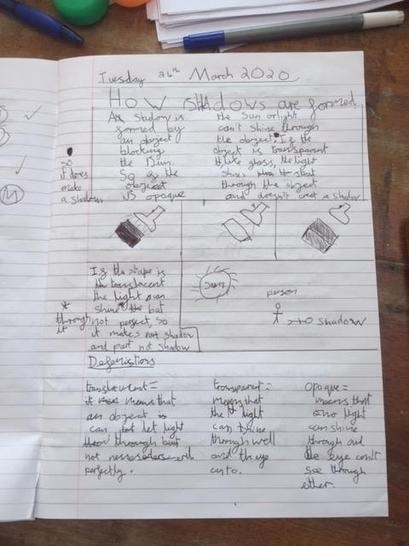 Tuesday 26th March 2020
How SHAdows are formed
A shadow is
formed by
an object
blocking
the Sun.
So if the
object
is opaque
so
it does
make
a shadow
the Sun or light
can't shine through
the object. If the
object is transparent
like glass, the light
through the object
and doesn't cret a shadow
If the shape is
translucent
the light can
shine the but
not perfect, so
it makes not shadow
and part not shadow
*
through
it
Sun
person
shadow
Definitions
translucent =
it means that
an object is
can let light
through but
not
perfectly.
transparent =
means that
the light
can shine
through well
and
Opaque =
means that
no light
can shine
through and
the eye can't
see through
ether.
M